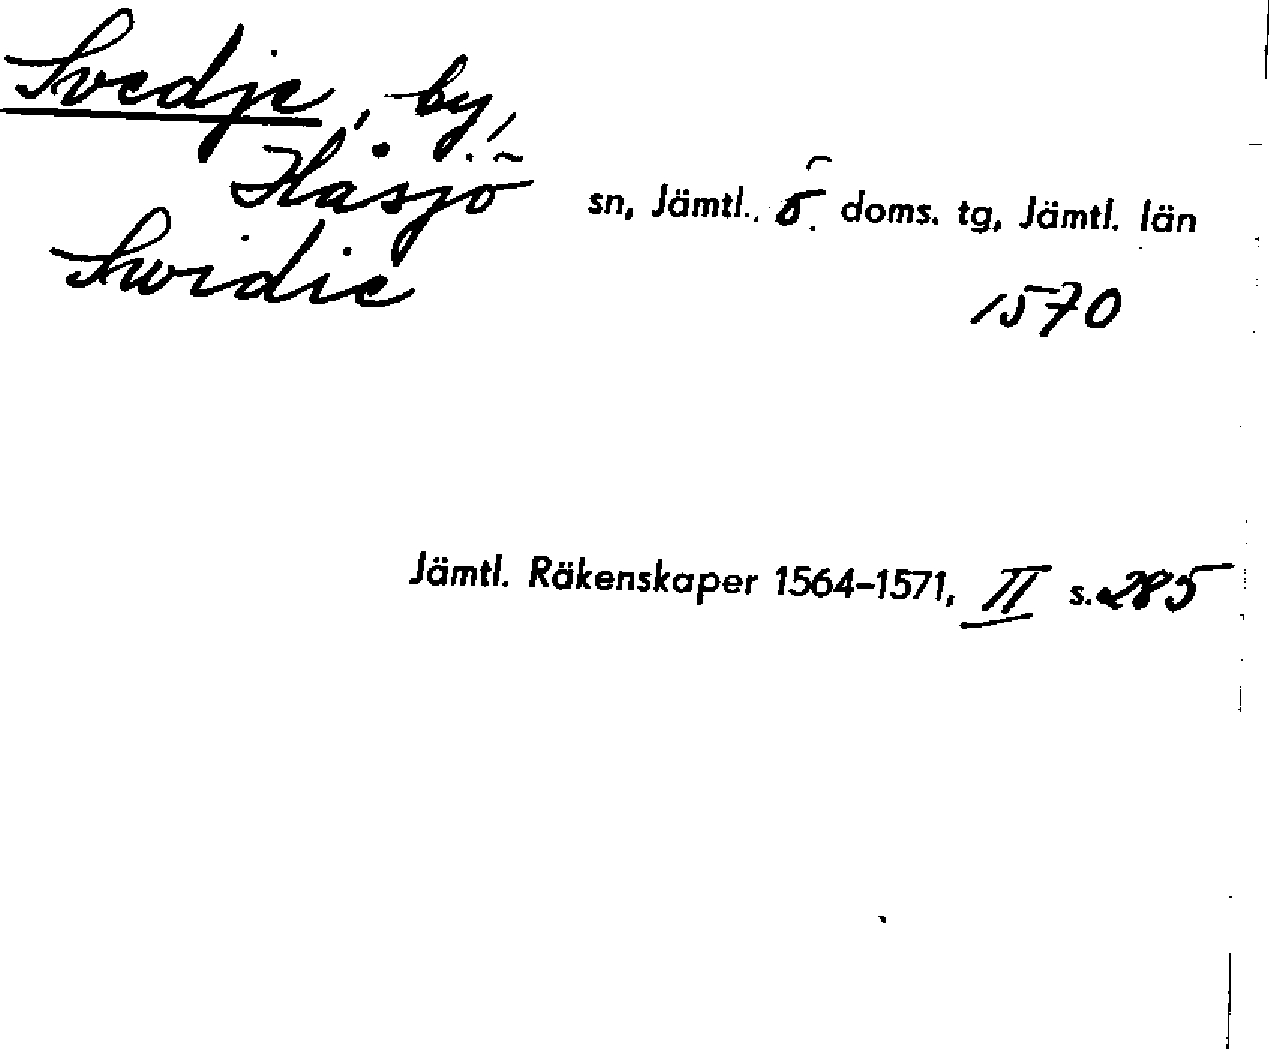 Svedje, by,
Hässjö sn, Jämtl. ö. doms. tg, Jämtl. län
Swidie
1570
Jämtl. Räkenskaper 1564-1571, II s. 285